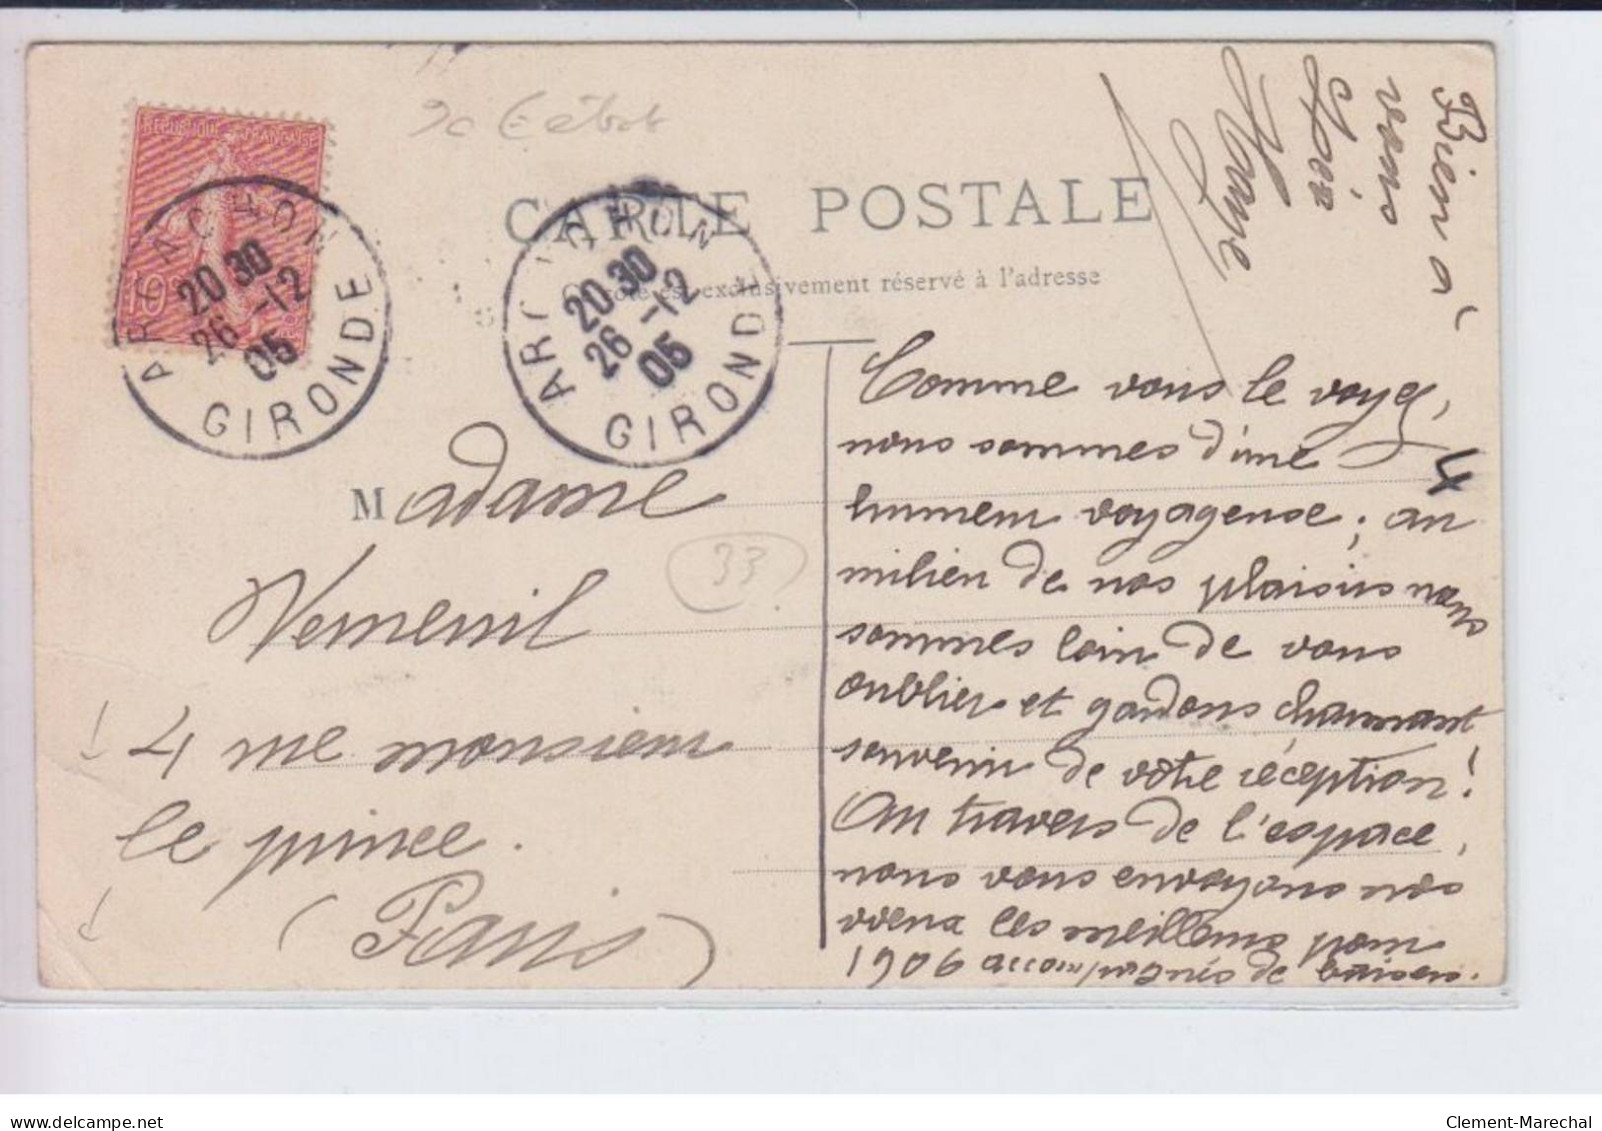 RÉPUBLIQUE FRANÇAISE
10
ARCACHON
20 30
26 -12
05
GIRONDE
ARCACHON
20 30
26 -12
05
GIRONDE
CARTE POSTALE
Ce côté est exclusivement réservé à l'adresse
Madame
Verneuil
4 rue monsieur
le prince.
(Paris)
33
Comme vous le voyez,
nous sommes d'une
humeur voyageuse; au
milieu de nos plaisirs nous
sommes loin de vous
oublier et gardons charmant
souvenir de votre réception!
Au travers de l'espace,
nous vous envoyons nos
vœux les meilleurs pour
1906 accompagnés de baisers.
Bien à
vous
4
delcampe.net
Clement-Marechal